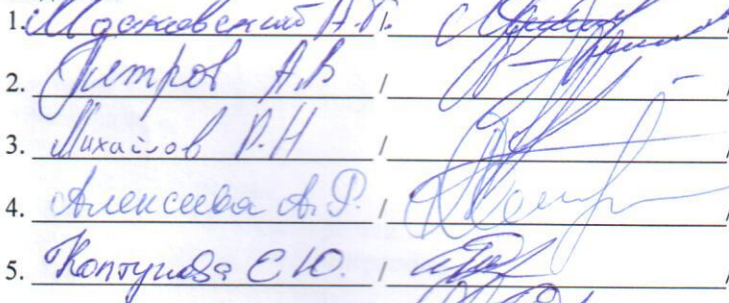 1. Московский А.Г. / /
2. Петров А.В / /
3. Михайлов Р.Н / /
4. Алексеева А.Р. / /
5. Колтунова Е.Ю. / /